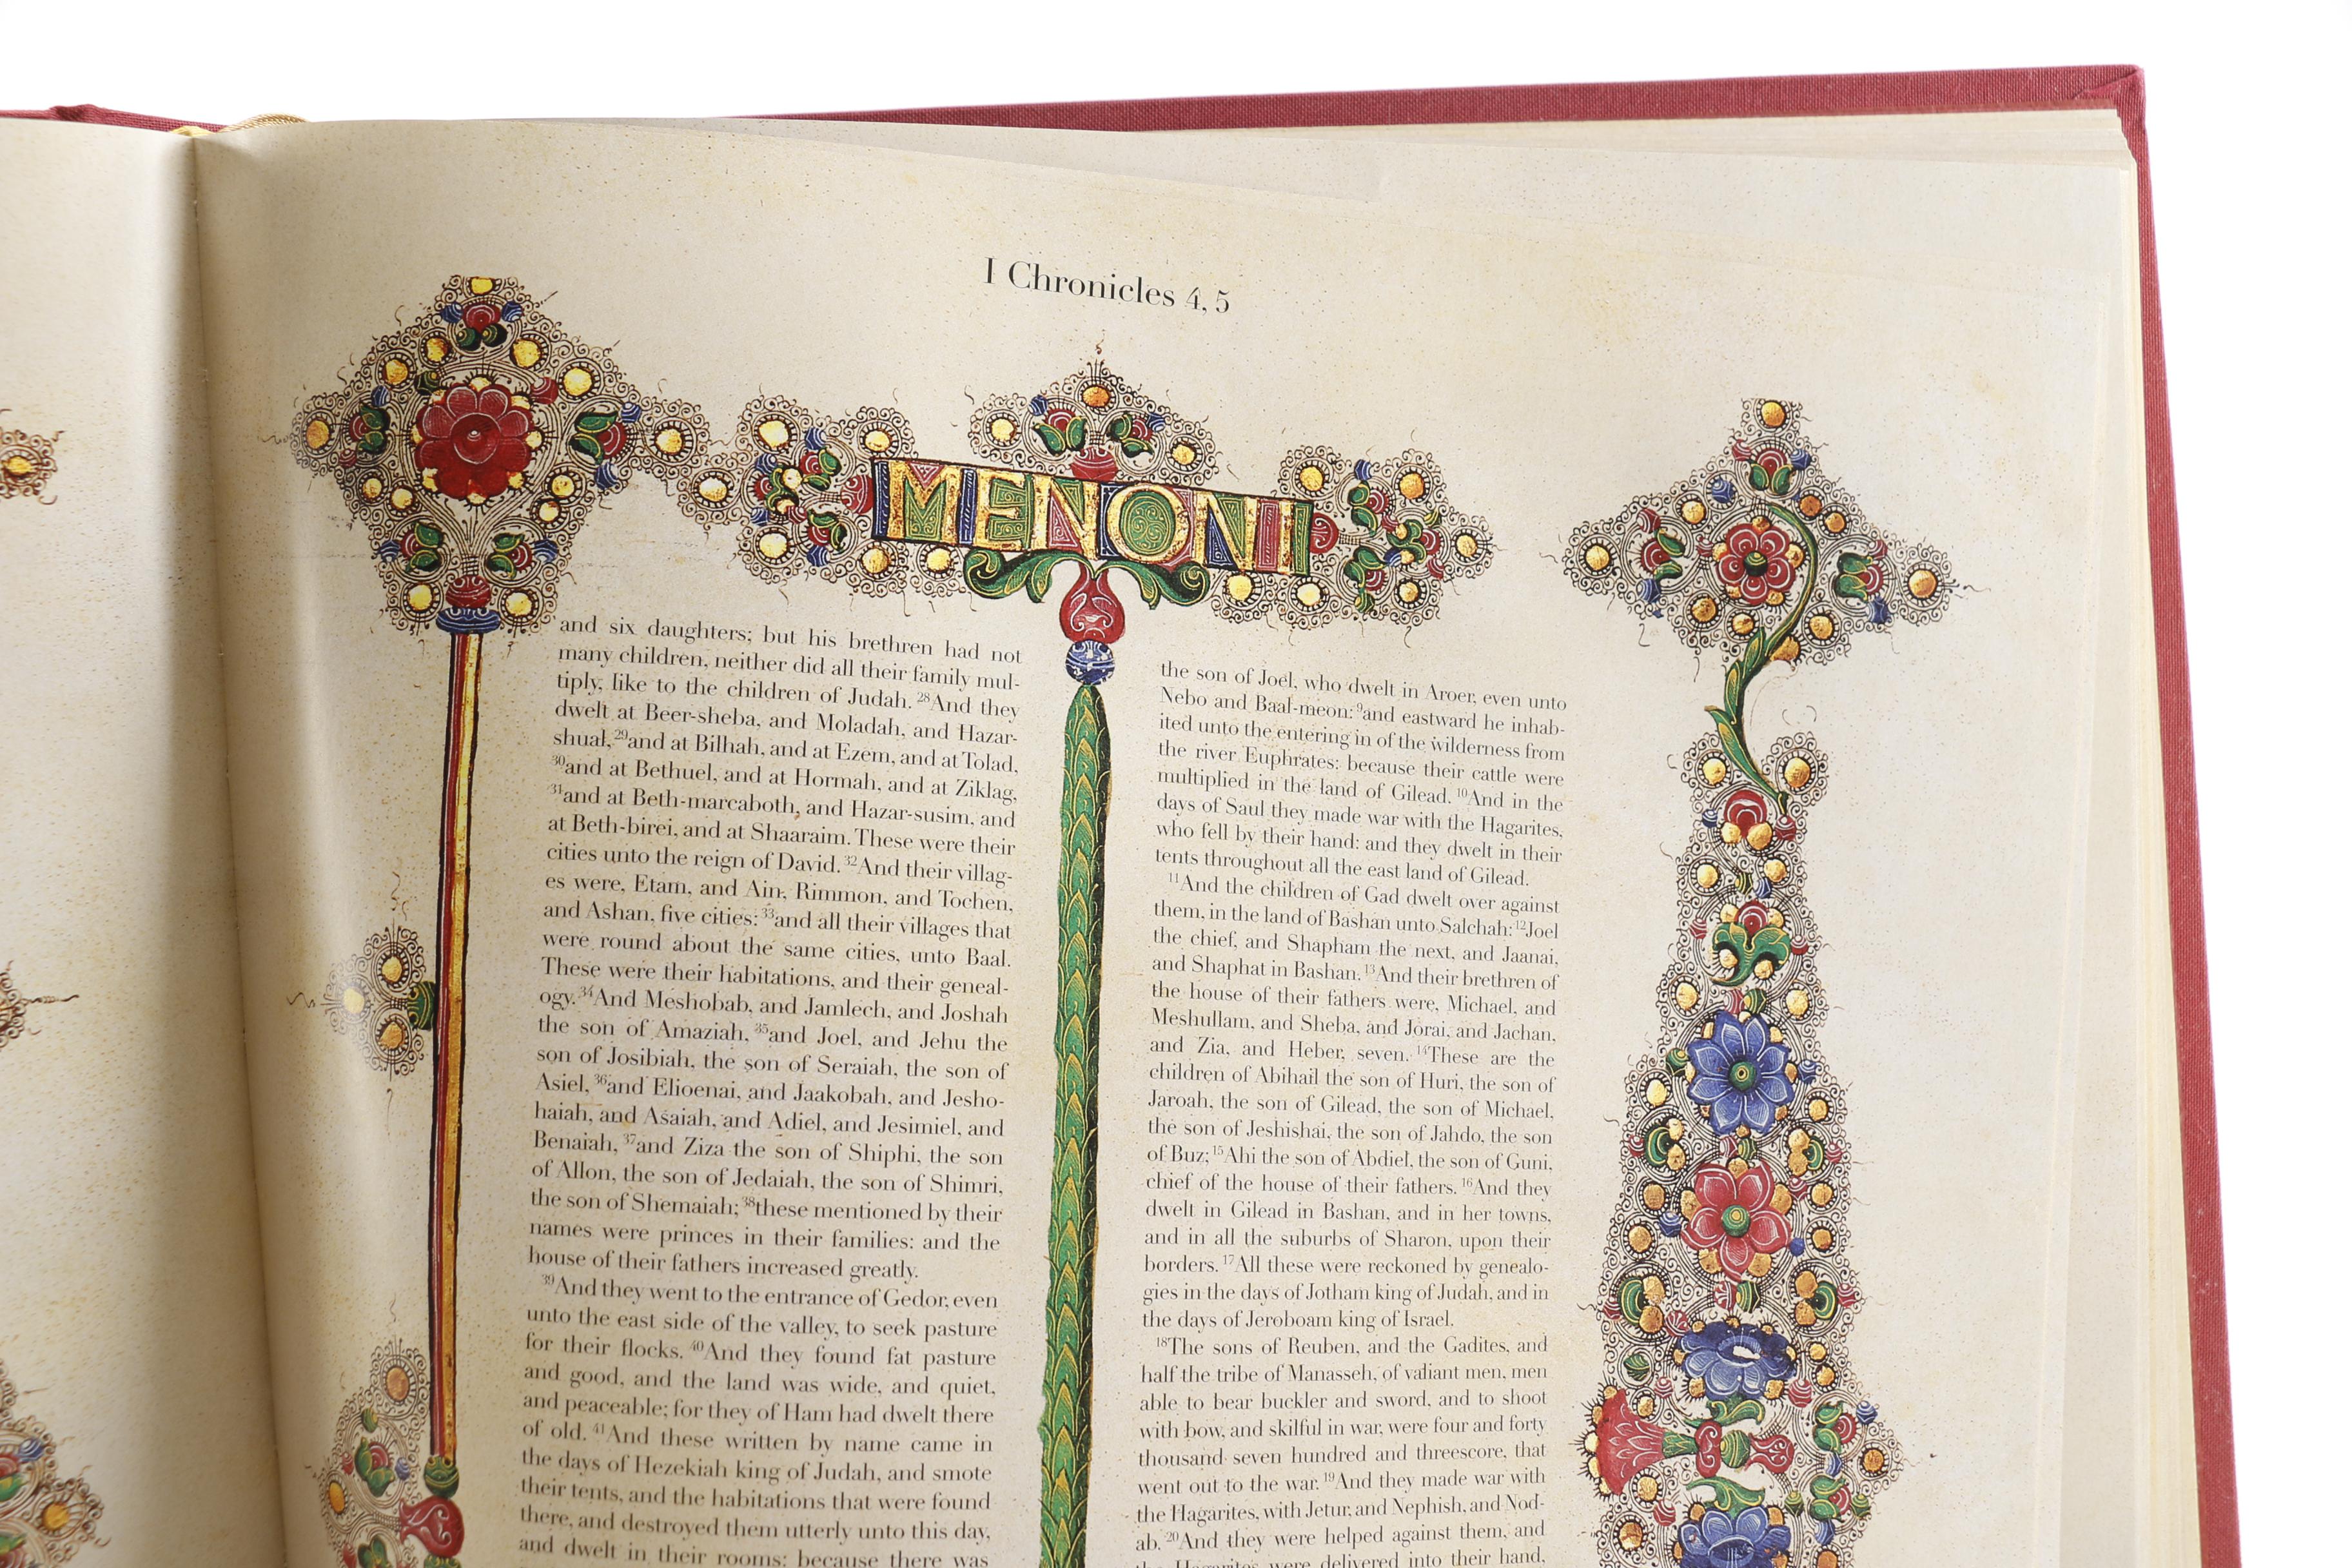 I Chronicles 4, 5
MENONI
and six daughters; but his brethren had not
many children, neither did all their family mul-
tiply, like to the children of Judah. 28And they
dwelt at Beer-sheba, and Moladah, and Hazar-
shual, 29and at Bilhah, and at Ezem, and at Tolad,
30and at Bethuel, and at Hormah, and at Ziklag,
31and at Beth-marcaboth, and Hazar-susim, and
at Beth-birei, and at Shaaraim. These were their
cities unto the reign of David. 32And their villag-
es were, Etam, and Ain, Rimmon, and Tochen,
and Ashan, five cities: 33and all their villages that
were round about the same cities, unto Baal.
These were their habitations, and their geneal-
ogy. 34And Meshobab, and Jamlech, and Joshah
the son of Amaziah, 35and Joel, and Jehu the
son of Josibiah, the son of Seraiah, the son of
Asiel, 36and Elioenai, and Jaakobah, and Jesho-
haiah, and Asaiah, and Adiel, and Jesimiel, and
Benaiah, 37and Ziza the son of Shiphi, the son
of Allon, the son of Jedaiah, the son of Shimri,
the son of Shemaiah; 38these mentioned by their
names were princes in their families: and the
house of their fathers increased greatly.
39And they went to the entrance of Gedor, even
unto the east side of the valley, to seek pasture
for their flocks. 40And they found fat pasture
and good, and the land was wide, and quiet,
and peaceable; for they of Ham had dwelt there
of old. 41And these written by name came in
the days of Hezekiah king of Judah, and smote
their tents, and the habitations that were found
there, and destroyed them utterly unto this day,
and dwelt in their rooms: because there was
the son of Joel, who dwelt in Aroer, even unto
Nebo and Baal-meon: 9and eastward he inhab-
ited unto the entering in of the wilderness from
the river Euphrates: because their cattle were
multiplied in the land of Gilead. 10And in the
days of Saul they made war with the Hagarites,
who fell by their hand: and they dwelt in their
tents throughout all the east land of Gilead.
11And the children of Gad dwelt over against
them, in the land of Bashan unto Salchah: 12Joel
the chief, and Shapham the next, and Jaanai,
and Shaphat in Bashan. 13And their brethren of
the house of their fathers were, Michael, and
Meshullam, and Sheba, and Jorai, and Jachan,
and Zia, and Heber, seven. 14These are the
children of Abihail the son of Huri, the son of
Jaroah, the son of Gilead, the son of Michael,
the son of Jeshishai, the son of Jahdo, the son
of Buz; 15Ahi the son of Abdiel, the son of Guni,
chief of the house of their fathers. 16And they
dwelt in Gilead in Bashan, and in her towns,
and in all the suburbs of Sharon, upon their
borders. 17All these were reckoned by genealo-
gies in the days of Jotham king of Judah, and in
the days of Jeroboam king of Israel.
18The sons of Reuben, and the Gadites, and
half the tribe of Manasseh, of valiant men, men
able to bear buckler and sword, and to shoot
with bow, and skilful in war, were four and forty
thousand seven hundred and threescore, that
went out to the war. 19And they made war with
the Hagarites, with Jetur, and Nephish, and Nod-
ab. 20And they were helped against them, and
the Hagarites were delivered into their hand,